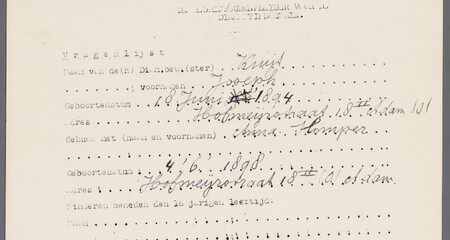 Vragenlijst
Naam van de(n) Dien.beu.(ster) Kuit
voornamen Joseph
Geboortedatum 18 Juni 1894
Adres Hofmeyrstraat 18 II A'dam (O)
Gehuwd met (naam en voornamen) Anna Klomper
Geboortedatum 4 '6' 1898
Adres Hofmeyrstraat 18 II (O) A'dam.
Kinderen beneden den 16 jarigen leeftijd:
Naam